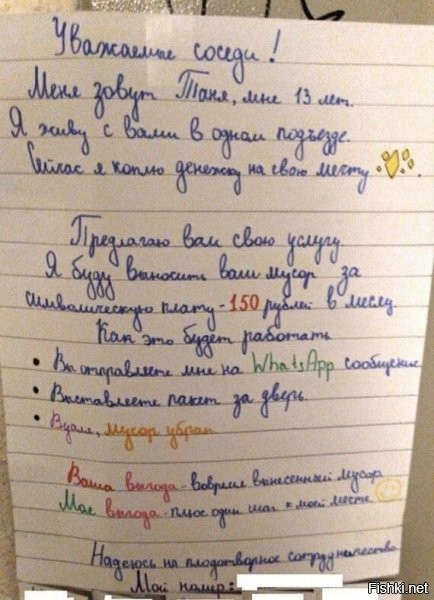 Уважаемые соседи!
Меня зовут Таня, мне 13 лет.
Я живу с вами в одном подъезде.
Сейчас я коплю денежку на свою мечту
Предлагаю вам свою услугу.
Я буду выносить ваш мусор за
символическую плату - 150 рублей в месяц.
Как это будет работать
• Вы отправляете мне на WhatsApp сообщение
• Выставляете пакет за дверь
• Вуаля, мусор убран
Ваша выгода - вовремя вынесенный мусор
Моя выгода - плюс один шаг к моей мечте
Надеюсь на плодотворное сотрудничество
Мой номер:
Fishki.net